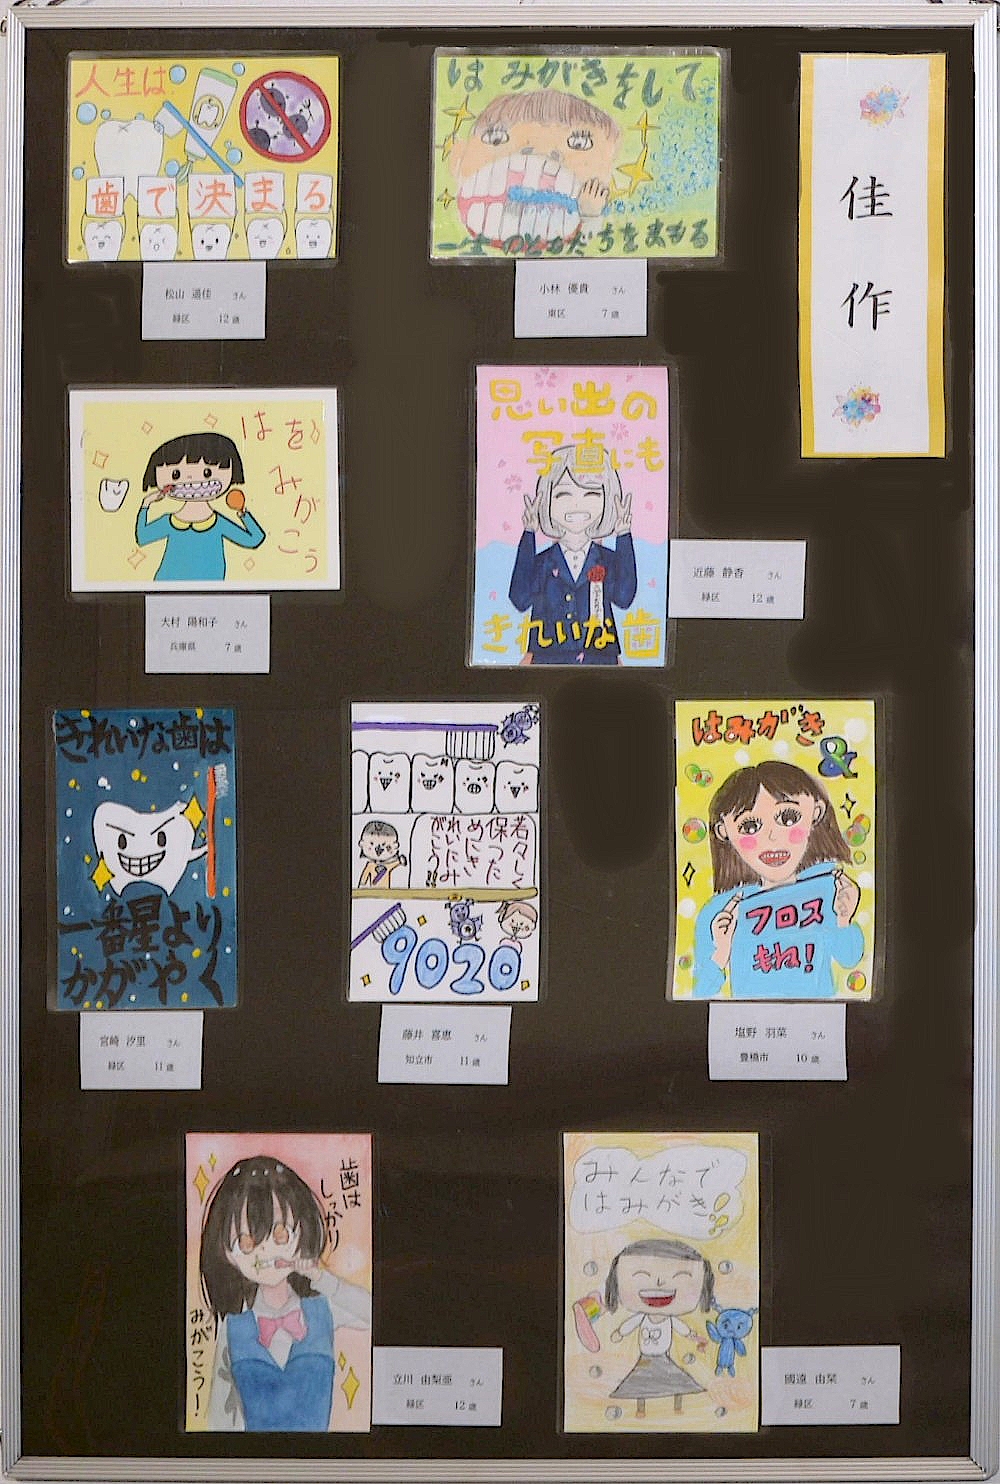 人生は
歯で決まる
松山 遥佳 さん
緑区 12歳
はみがきをして
一生のともだちをまもる
小林 優貴 さん
東区 7歳
佳作
はを
みがこう
大村 陽和子 さん
兵庫県 7歳
思い出の
写真にも
きれいな歯
近藤 静香 さん
緑区 12歳
きれいな歯は
一番星より
かがやく
宮崎 汐里 さん
緑区 11歳
若々しく
保つた
めにき
れいにみ
がこう!!
9020
藤井 喜恵 さん
知立市 11歳
はみがき
&
フロス
もね!
塩野 羽菜 さん
豊橋市 10歳
歯は
しっかり
みがこうー!
立川 由梨亜 さん
緑区 12歳
みんなで
はみがき!!
國遠 由栞 さん
緑区 7歳